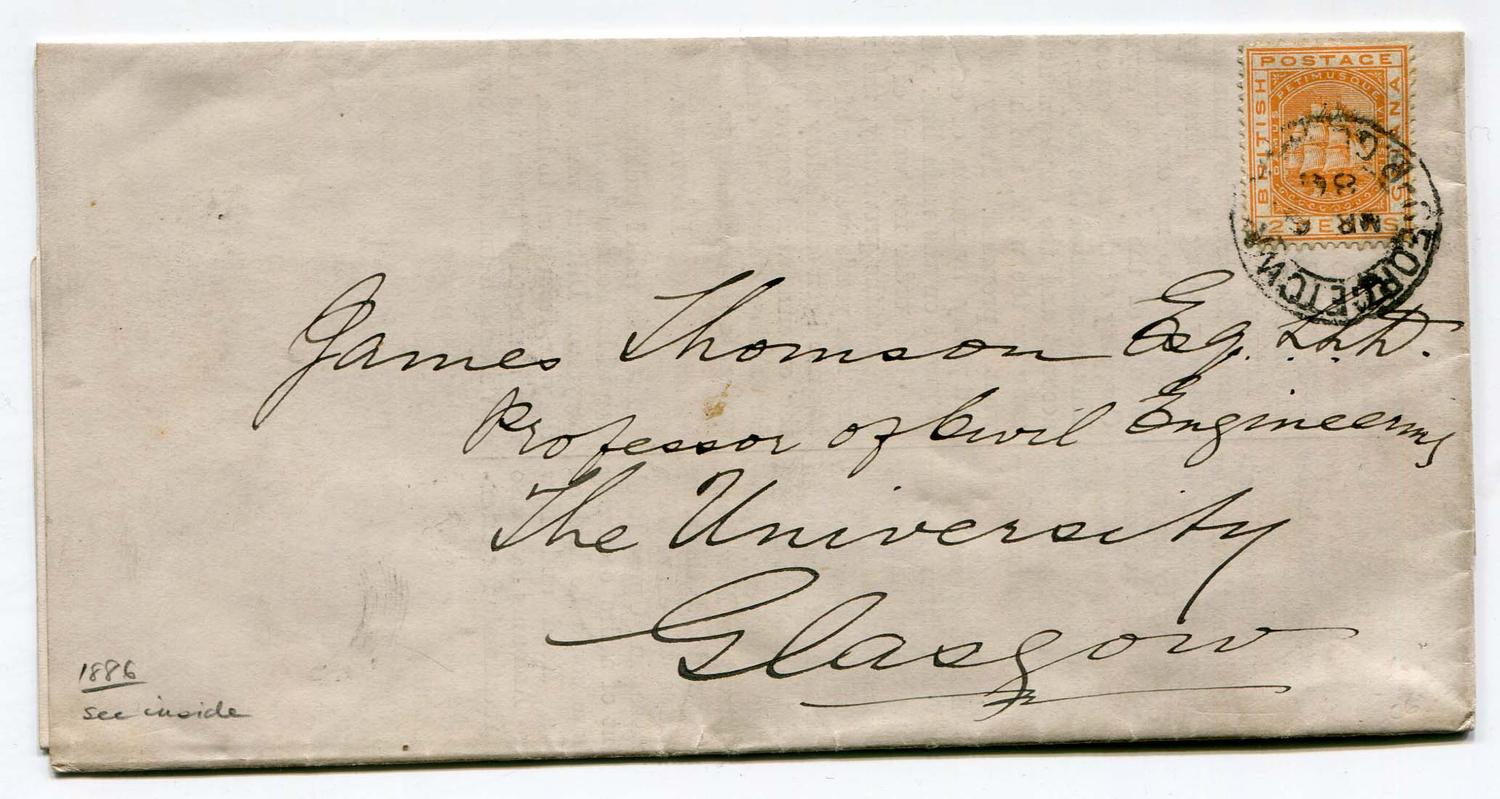 POSTAGE
BRITISH
PETIMUSQUE
2 CENTS
GEORGETOWN
MR 6
86
James Thomson Esq. LL.D.
Professor of Civil Engineering
The University
Glasgow
1886
see inside